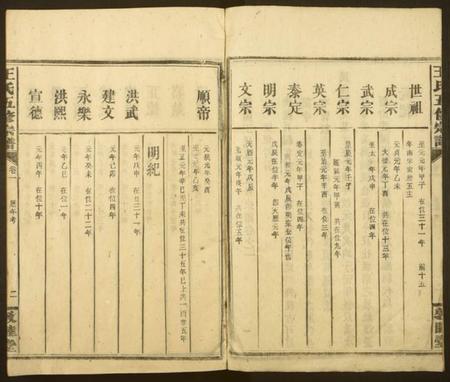 王氏五修宗譜
世祖
至元元年甲子 在位三十一年 前十五
年南宋帝昺五主
成宗
元貞元年乙未
大德元年丁酉 共在位十三年
武宗
至大元年戊申 在位四年
仁宗
皇慶元年壬子
延祐元年甲寅 共在位九年
英宗
至治元年辛酉 在位三年
泰定
泰定元年甲子 在位四年
文宗
天曆元年戊辰
共在位五年
順帝
元統元年癸酉
至元元年乙亥
明紀
洪武
元年戊申 在位三十一年
建文
元年己卯 在位四年
永樂
元年癸未 在位二十二年
洪熙
元年乙巳 在位一年
宣德
元年丙午 在位十年
王氏五修宗譜
卷一
歷年考
二
敦睦堂